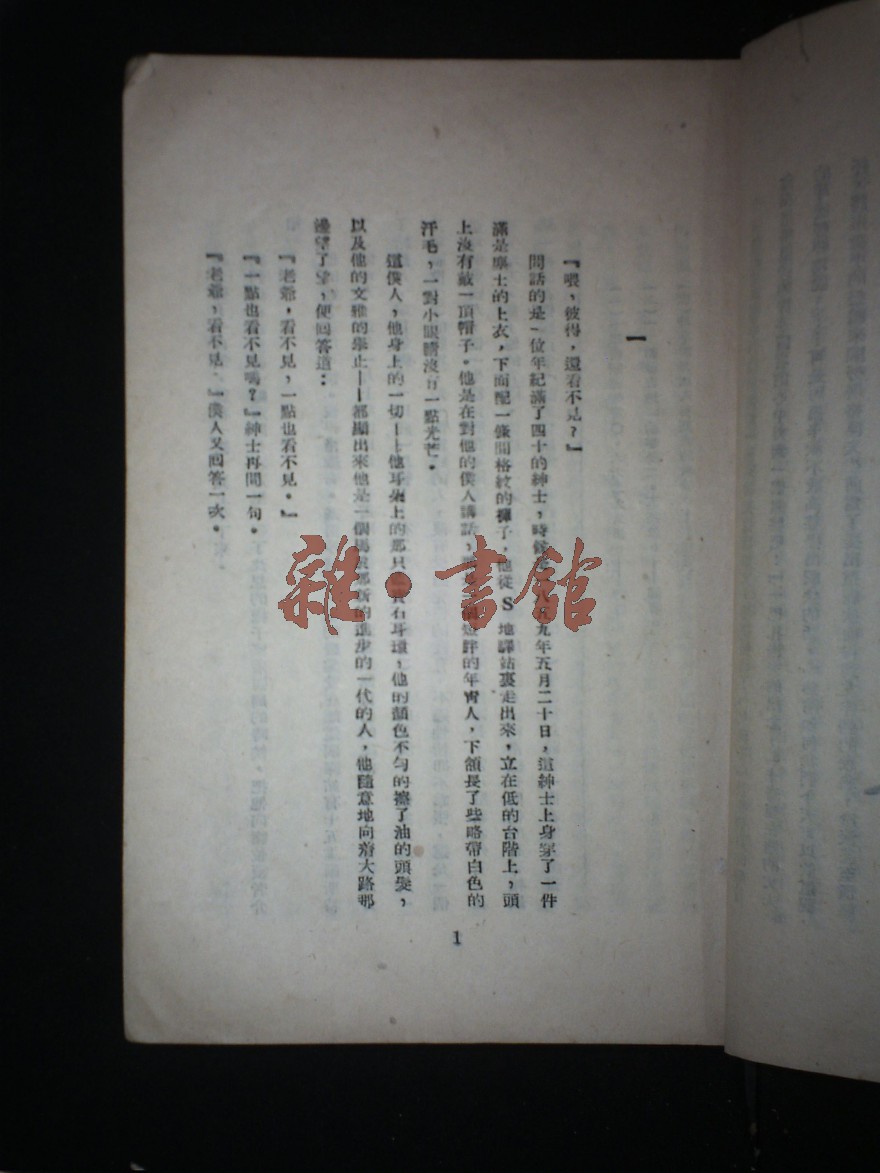 一
『喂，彼得，還看不見？』
問話的是一位年紀滿了四十的紳士，時候 九年五月二十日，這紳士上身穿了一件
滿是塵土的上衣，下面配一條間格紋的褲子，他從S地驛站裏走出來，立在低的台階上，頭
上沒有戴一頂帽子。他是在對他的僕人講話， 短胖的年青人，下頷長了些略帶白色的
汗毛，一對小眼睛沒有一點光芒。
這僕人，他身上的一切——他耳朵上的那只 寶石耳環，他的顏色不勻的擦了油的頭髮，
以及他的文雅的舉止——都顯出來他是一個 的進步的一代的人，他隨意地向着大路那
邊望了望，便回答道：
『老爺，看不見，一點也看不見。』
『一點也看不見嗎？』紳士再問一句。
『老爺，看不見。』僕人又回答一次。
1
雜·書館